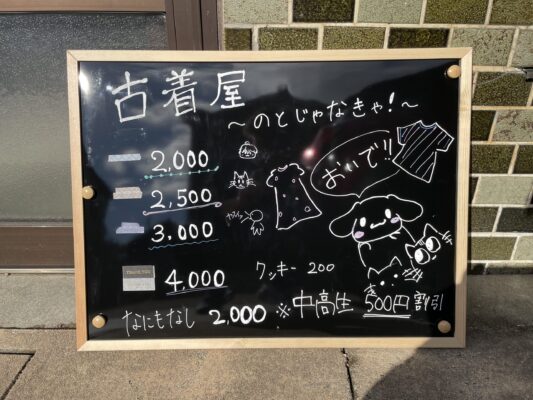 古着屋
～のとじゃなきゃ!～
おいで!!
2,000
2,500
3,000
4,000
クッキー 200
なにもなし 2,000 ※中高生 500円割引